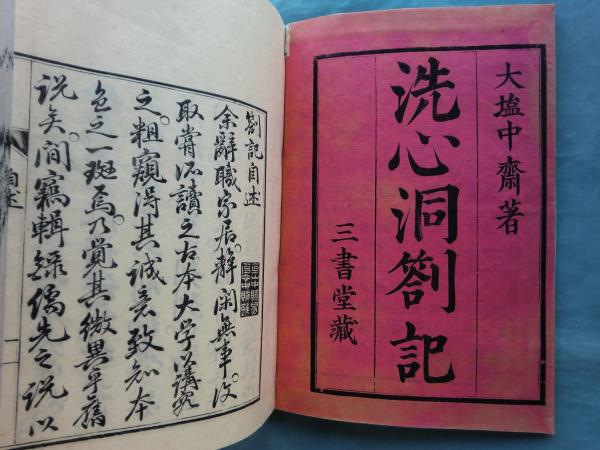 大塩中齋著
洗心洞劄記
三書堂藏
劄記自述
余辭職家居靜閑無事汝
取嘗所讀之古本大学以講究
之粗窺得其誠意致知本
色之一斑焉乃覺其微異乎舊
说矣間竊輯録儒先之说以
自述